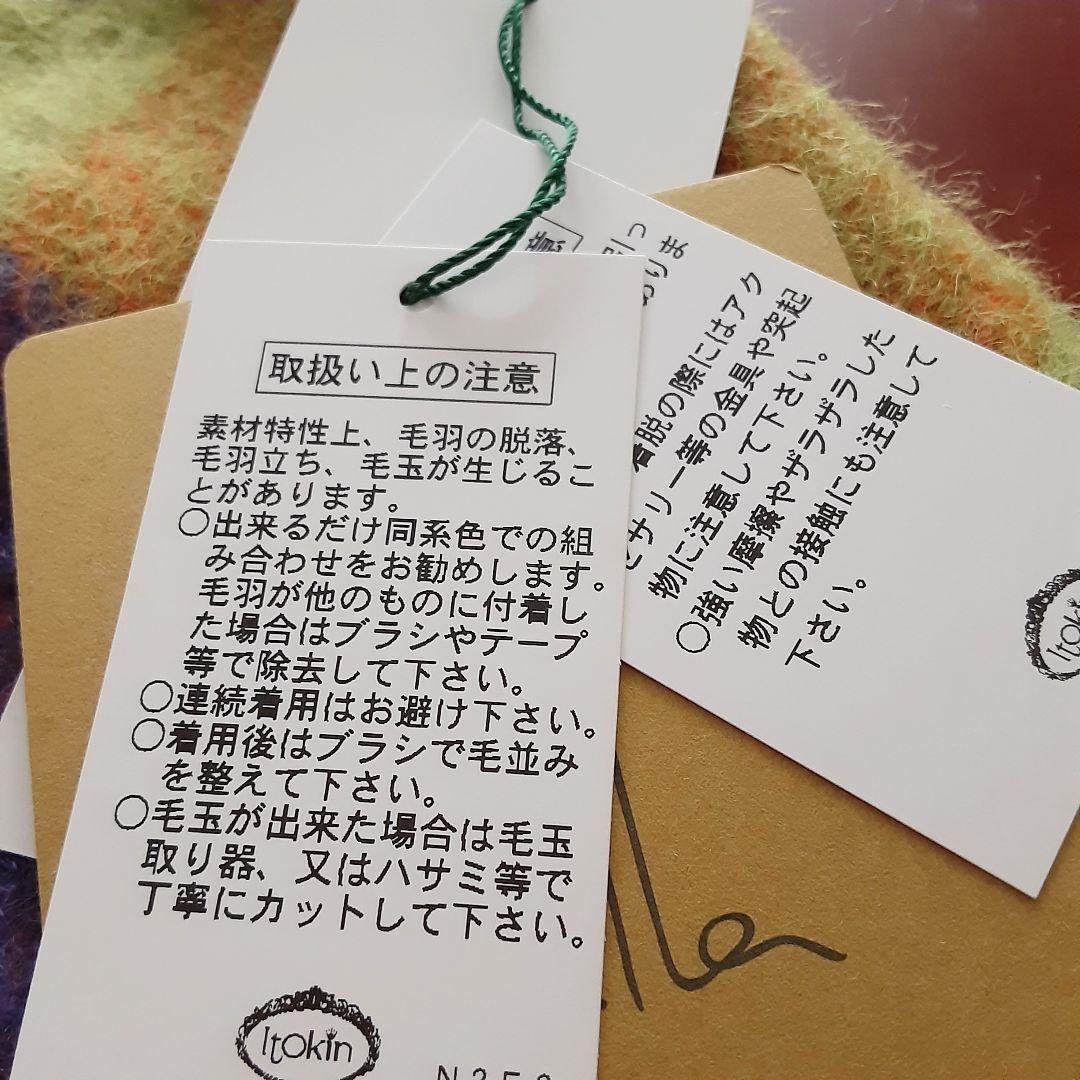 取扱い上の注意
素材特性上、毛羽の脱落、
毛羽立ち、毛玉が生じるこ
とがあります。
○出来るだけ同系色での組
み合わせをお勧めします。
毛羽が他のものに付着し
た場合はブラシやテープ
等で除去して下さい。
○連続着用はお避け下さい。
○着用後はブラシで毛並み
を整えて下さい。
○毛玉が出来た場合は毛玉
取り器、又はハサミ等で
丁寧にカットして下さい。
Itokin
意
引っ
おりま
着脱の際にはアク
セサリー等の金具や突起
物に注意して下さい。
○強い摩擦やザラザラした
物との接触にも注意して
下さい。
Itokin